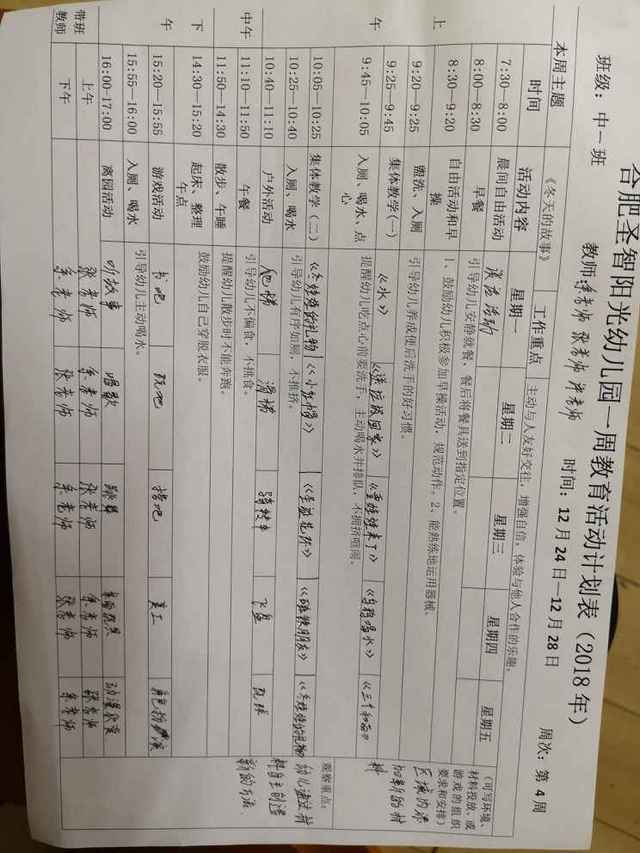 合肥圣智阳光幼儿园一周教育活动计划表（2018年）
班级：中一班 教师：李老师 张老师 时间：12月24日—12月28日 周次：第4周
本周主题 《冬天的故事》 工作重点 主动与人友好交往，增强自信，体验与他人合作的乐趣。
时间 活动内容 星期一 星期二 星期三 星期四 星期五
（可写环境、材料投放、或游戏的组织要求和安排）
上午
7:30—8:00 晨间自由活动 区角活动
8:00—8:30 早餐 引导幼儿安静就餐，餐后将餐具送到指定位置。
8:30—9:20 自由活动和早操 1、鼓励幼儿积极参加早操活动，规范动作。2、能熟练地运用器械。
9:20—9:25 盥洗、入厕 引导幼儿养成便后洗手的好习惯。
9:25—9:45 集体教学（一） 《水》
9:45—10:05 入厕、喝水、点心 提醒幼儿吃点心前要洗手，主动喝水并排队，不拥挤喧闹。
10:05—10:25 集体教学（二） 《小红帽》
观察重点：
10:25—10:40 入厕、喝水 引导幼儿有序如厕，不推挤。
10:40—11:10 户外活动 爬梯 滑梯 骑转车 飞盘 玩球
中午
11:10—11:50 午餐 引导幼儿不偏食，不挑食。
11:50—14:30 散步、午睡 提醒幼儿散步时不能奔跑。
下午
14:30—15:20 起床、整理 午点 鼓励幼儿自己穿脱衣服。
15:20—15:55 游戏活动 书吧 玩吧 搭吧 美工 角色扮演
15:55—16:00 入厕、喝水 引导幼儿主动喝水。
16:00-17:00 离园活动 听故事 唱歌 跳舞 动漫欣赏
带班教师
上午 张老师 李老师 张老师 李老师 张老师
下午 李老师 张老师 李老师 张老师 李老师